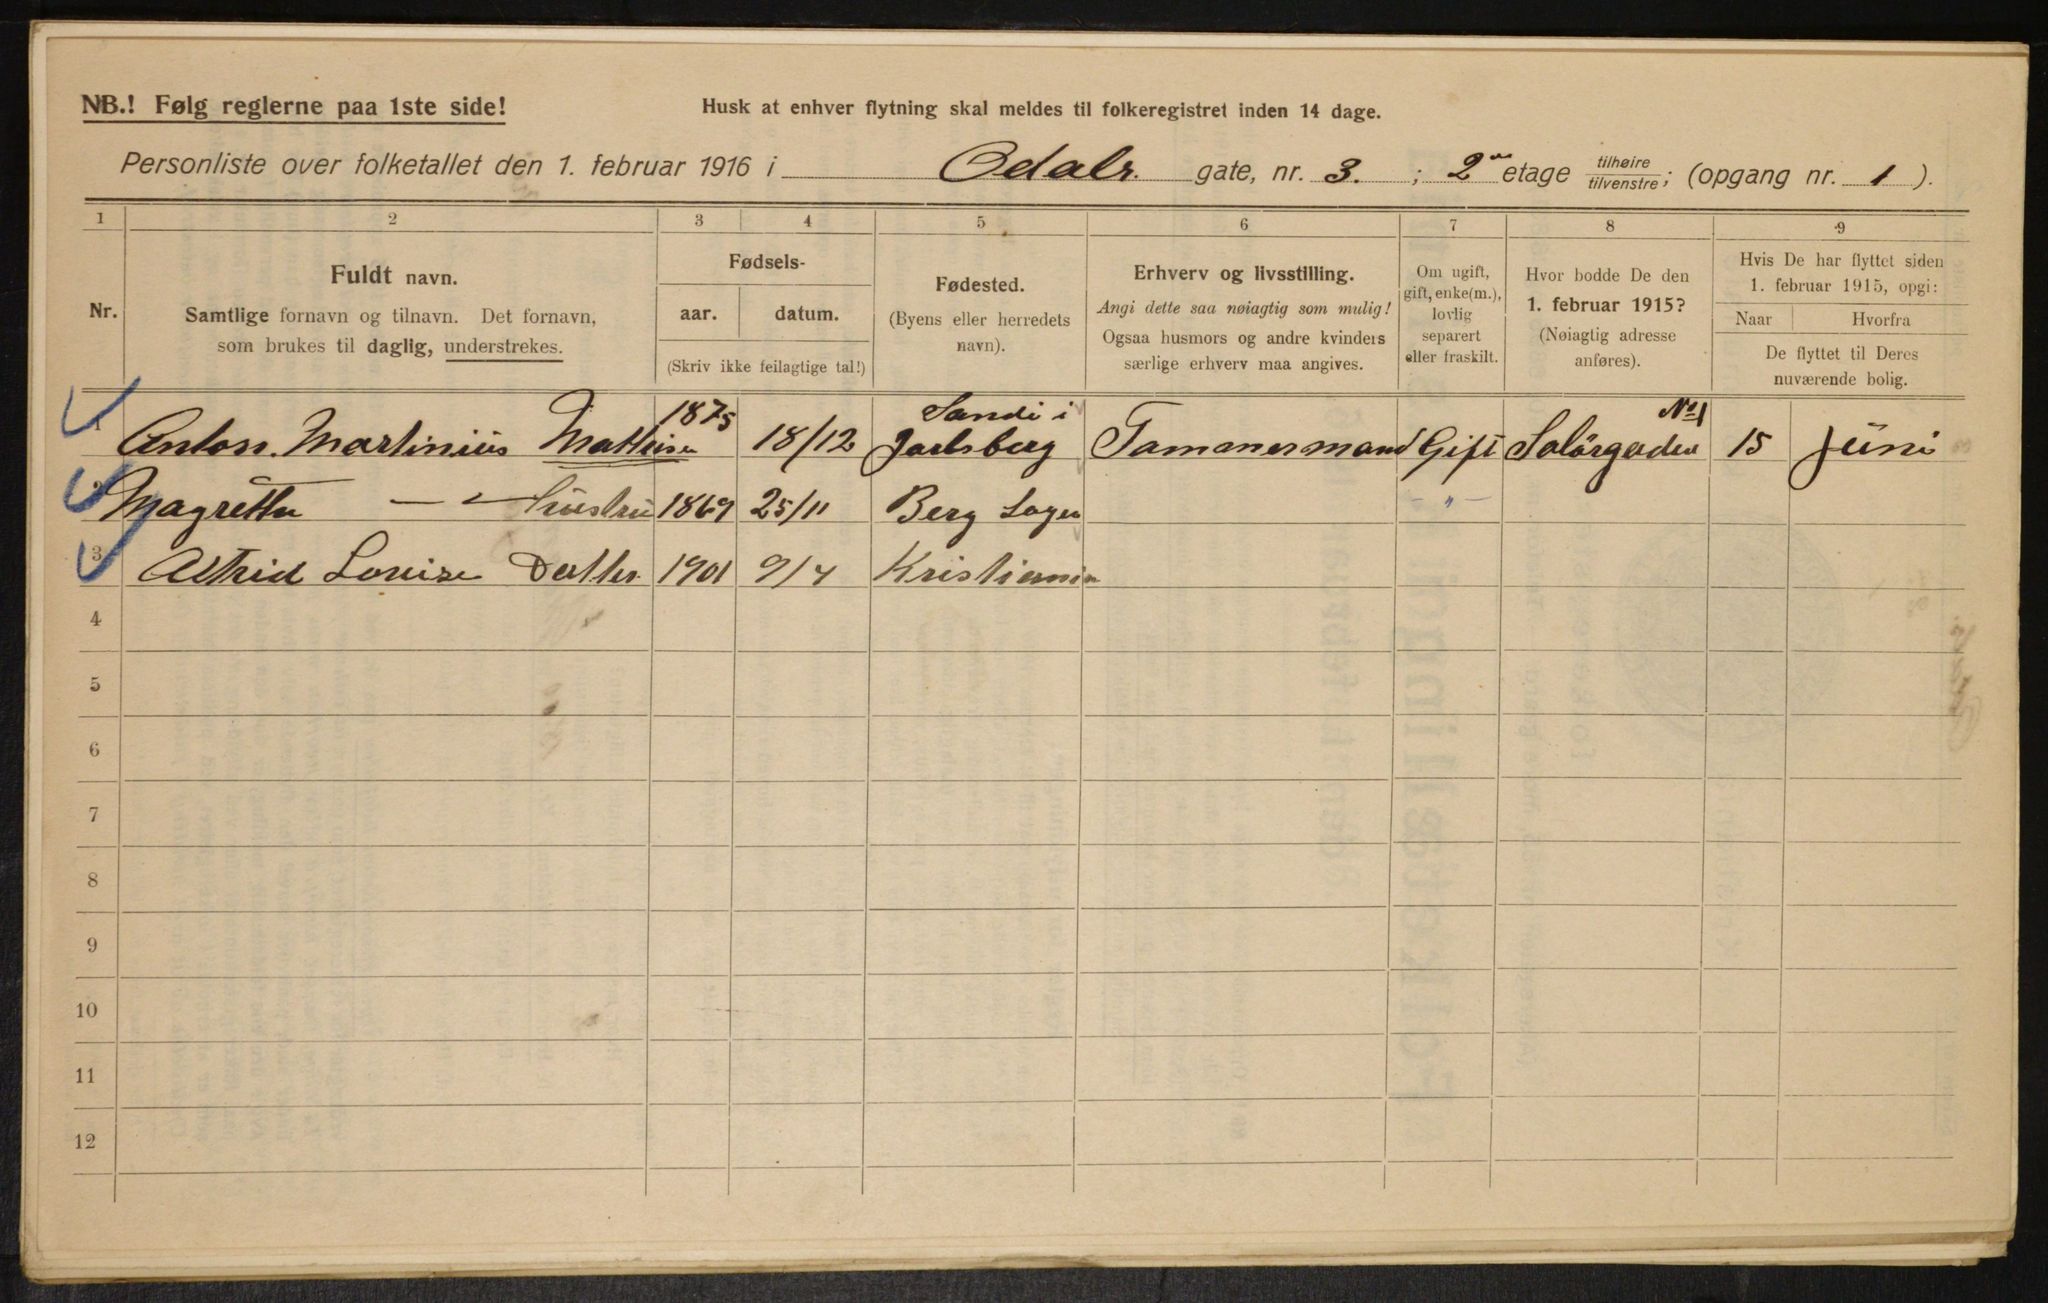 NB.! Følg reglerne paa 1ste side!
Husk at enhver flytning skal meldes til folkeregistret inden 14 dage.
Personliste over folketallet den 1. februar 1916 i Odals. gate, nr. 3. ; 2 etage tilhøire/tilvenstre; (opgang nr. 1 ).
1 2 3 4 5 6 7 8 9
Nr.
Fuldt navn.
Samtlige fornavn og tilnavn. Det fornavn,
som brukes til daglig, understrekes.
Fødsels-
aar. datum.
(Skriv ikke feilagtige tal!)
Fødested.
(Byens eller herredets
navn).
Erhverv og livsstilling.
Angi dette saa nøiagtig som mulig!
Ogsaa husmors og andre kvinders
særlige erhverv maa angives.
Om ugift,
gift, enke(m.),
lovlig
separert
eller fraskilt.
Hvor bodde De den
1. februar 1915?
(Nøiagtig adresse
anføres).
Hvis De har flyttet siden
1. februar 1915, opgi:
Naar Hvorfra
De flyttet til Deres
nuværende bolig.
1875 Sandi i No 1
1 Anton. Martinius Mathisen 18/12 Jarlsberg Tømmermand Gift Solørgaden 15 Juni
2 Magrethe — Hustru 1869 25/11 Berg -"-
3 Astrid Lovise Datter 1901 9/4 Kristiania
4
5
6
7
8
9
10
11
12